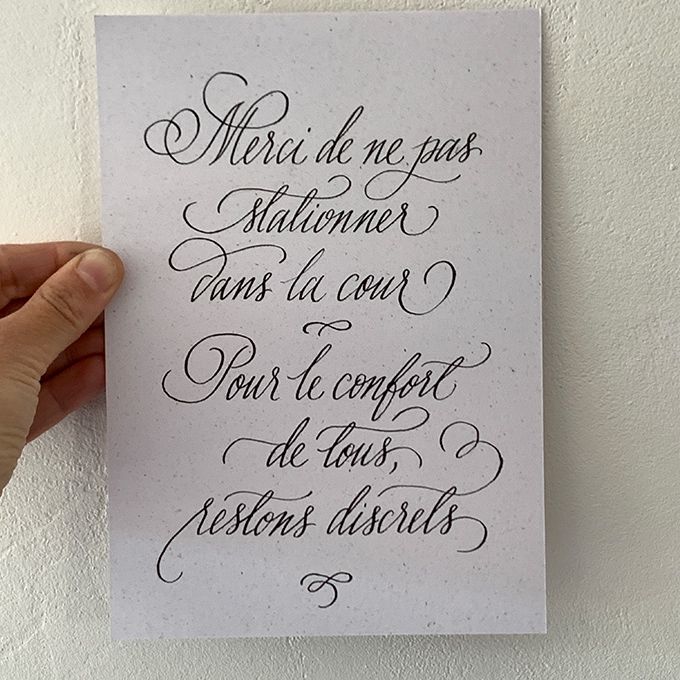 Merci de ne pas
stationner
dans la cour
Pour le confort
de tous,
restons discrets